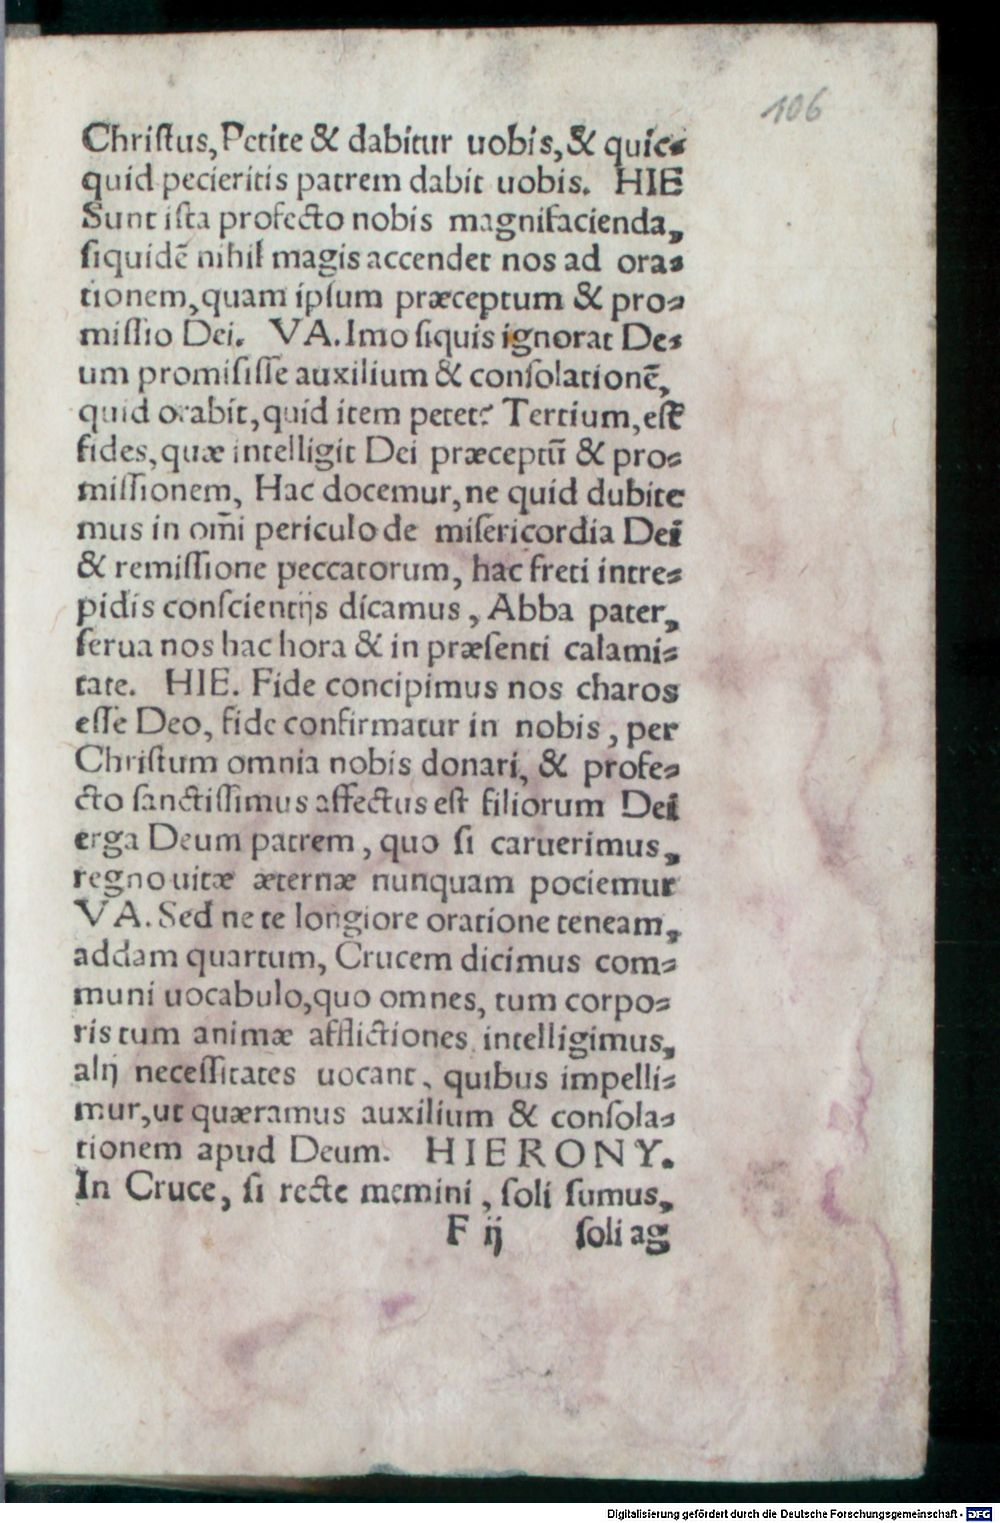 106
Chriſtus, Petite & dabitur uobis, & quic⸗
quid pecieritis patrem dabit uobis. HIE
Sunt iſta profecto nobis magnifacienda,
ſiquidē nihil magis accendet nos ad ora⸗
tionem, quam ipſum præceptum & pro⸗
miſſio Dei. VA. Imo ſiquis ignorat De⸗
um promiſiſſe auxilium & conſolationē,
quid orabit, quid item petet? Tertium, eſt
fides, quæ intelligit Dei præceptū & pro⸗
miſſionem, Hac docemur, ne quid dubite
mus in om̄i periculo de miſericordia Dei
& remiſſione peccatorum, hac freti intre⸗
pidis conſcientijs dicamus, Abba pater,
ſerua nos hac hora & in præſenti calami⸗
tate. HIE. Fide concipimus nos charos
eſſe Deo, fide confirmatur in nobis, per
Chriſtum omnia nobis donari, & profe⸗
cto ſanctiſſimus affectus eſt filiorum Dei
erga Deum patrem, quo ſi caruerimus,
regno uitæ æternæ nunquam pociemur
VA. Sed ne te longiore oratione teneam,
addam quartum, Crucem dicimus com⸗
muni uocabulo, quo omnes, tum corpo⸗
ris tum animæ afflictiones intelligimus,
alij neceſſitates uocant, quibus impelli⸗
mur, ut quæramus auxilium & conſola⸗
tionem apud Deum. HIERONY.
In Cruce, ſi recte memini, ſoli ſumus,
F ij ſoli ag
Digitalisierung gefördert durch die Deutsche Forschungsgemeinschaft - DFG